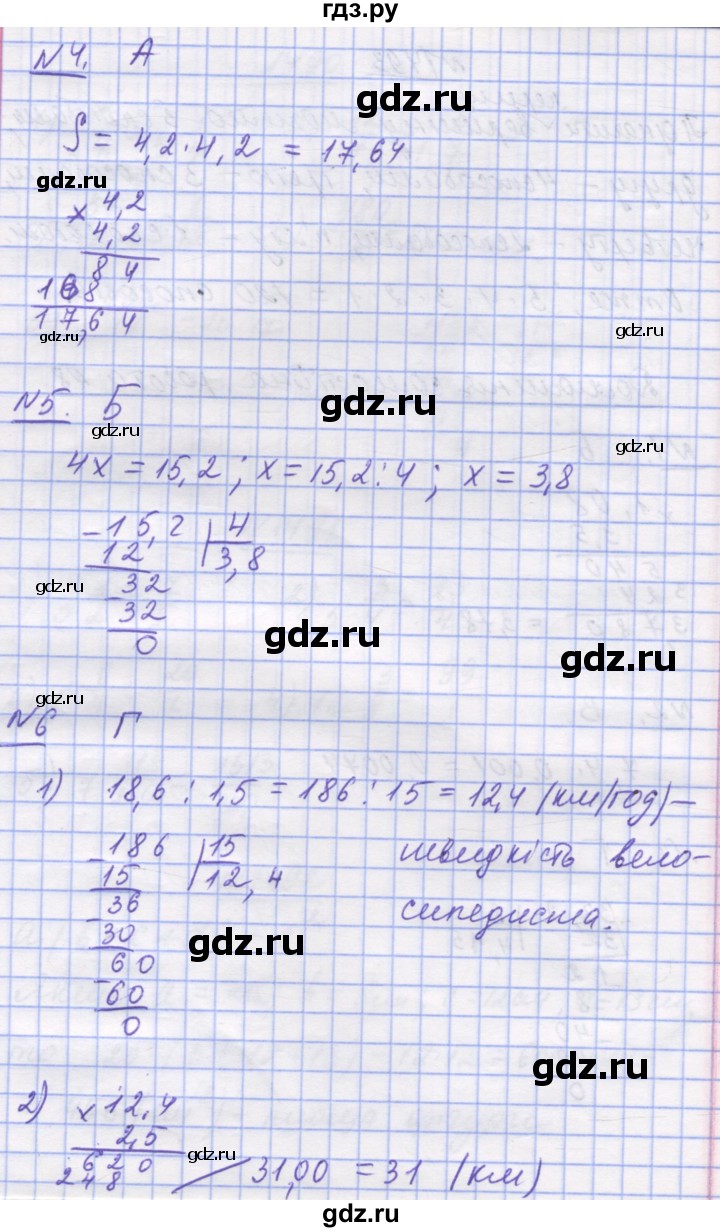 гдз.ру
№4. А
gdz.ru
S = 4,2 · 4,2 = 17,64
gdz.ru
× 4,2
4,2
84
168
17,64
gdz.ru
gdz.ru
№5. Б
gdz.ru
gdz.ru
gdz.ru
4х = 15,2 ; х = 15,2 : 4 ; х = 3,8
- 15,2 | 4
12 3,8
32
gdz.ru
gdz.ru
32
0
gdz.ru
gdz.ru
gdz.ru
№6 Г
1) 18,6 : 1,5 = 186 : 15 = 12,4 (км/год) –
швидкість вело-
сипедиста.
- 186 | 15
15 12,4
gdz.ru
36
30
gdz.ru
60
60
0
gdz.ru
2) × 12,4
2,5
gdz.ru
620
248
31,00 = 31 (км)
gdz.ru